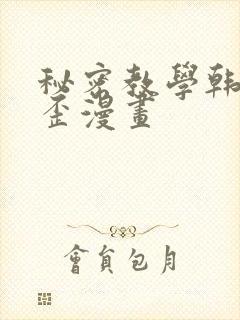 秘密教學韩
歪漫畫
會員包月